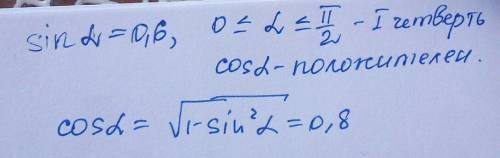 sin α = 0,6, 0 ≤ α ≤ π/2 - I четверть
cosα - положителен.
cosα = √1-sin²α = 0,8